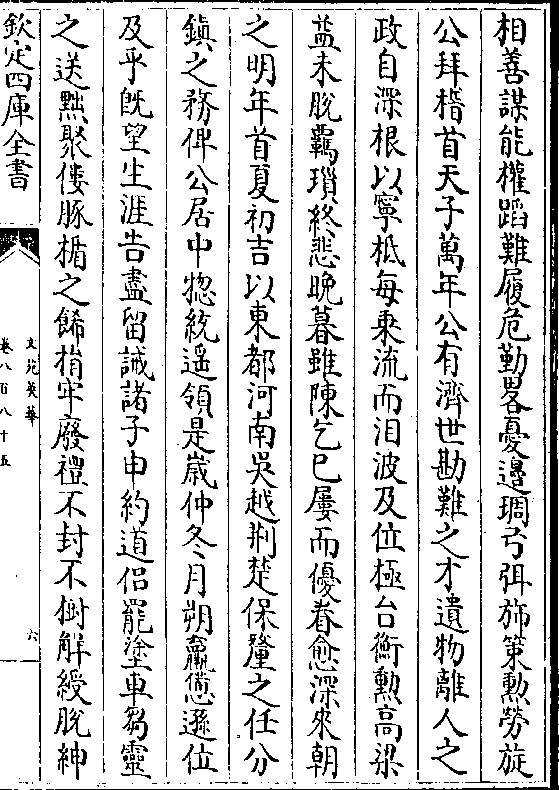 相善謀能權蹈難履危勤畧憂邊琱弓弭斾策勲勞旋
公拜稽首天子萬年公有濟世勘難之才遺物離人之
政自深根以寧柢每乘流而泪波及位極台衡勲高梁
葢未脫羈瑣終悲晩暮雖陳乞已屢而優眷愈深來朝
之明年首夏初吉以東都河南吳越荆楚保釐之任分
鎮之務俾公居中惣統遥領是歳仲冬月朔羸憊遜位
及乎旣望生涯告盡留誡諸子申約道侣罷塗車芻靈
之送㸃聚僂豚楯之餙梢牢廢禮不封不樹解綬脫紳
欽定四庫全書
文苑英華
卷八百八十五
六